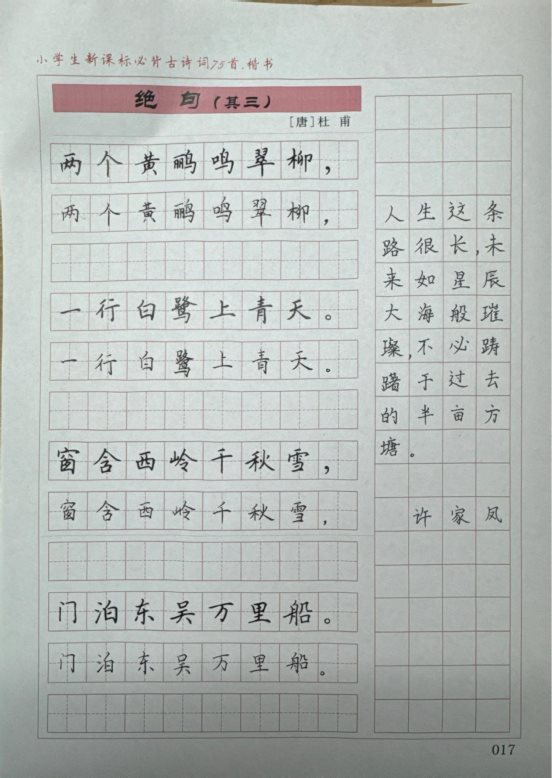 小学生新课标必背古诗词75首.楷书
绝句(其三)
[唐]杜甫
两个黄鹂鸣翠柳,
两个黄鹂鸣翠柳,
一行白鹭上青天。
一行白鹭上青天。
窗含西岭千秋雪,
窗含西岭千秋雪,
门泊东吴万里船。
门泊东吴万里船。
人生这条
路很长,未
来如星辰
大海般璀
璨,不必踌
躇于过去
的半亩方
塘。
许家凤
017